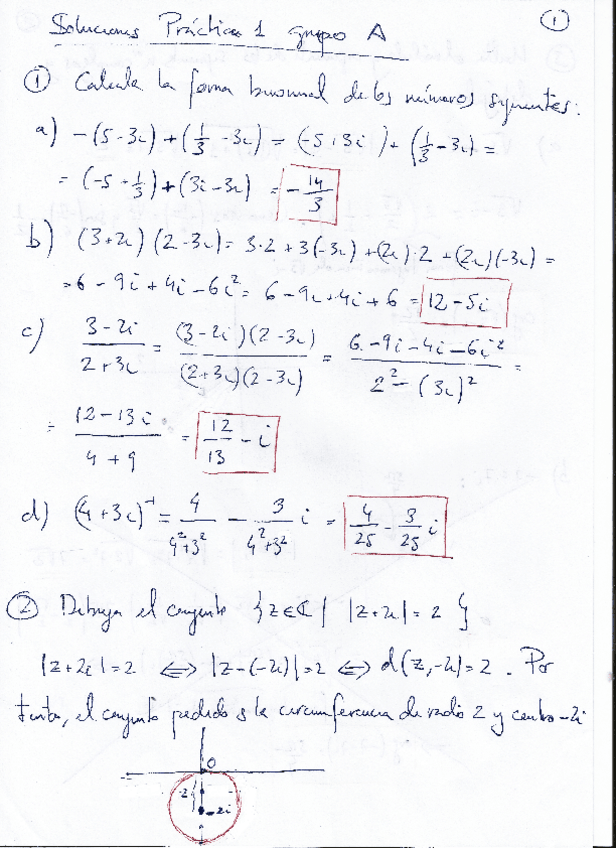 Soluciones Práctica 1 grupo A
1
① Calcula la forma binomial de los números siguientes:
a) -(5-3i)+(1/3-3i) = (-5+3i)+(1/3-3i) =
= (-5+1/3)+(3i-3i) = -14/3
b) (3+2i)(2-3i) = 3·2+3(-3i)+(2i)·2+(2i)(-3i) =
= 6-9i+4i-6i² = 6-9i+4i+6 = 12-5i
c) (3-2i)/(2+3i) = (3-2i)(2-3i)/(2+3i)(2-3i) = (6-9i-4i-6i²)/(2²-(3i)²) =
= (12-13i)/(4+9) = 12/13 - i
d) (4+3i)⁻¹ = 4/(4²+3²) - 3/(4²+3²) i = 4/25 - 3/25 i
② Dibuja el conjunto {z∈ℂ | |z+2i| = 2}
|z+2i|=2 ⟺ |z-(-2i)|=2 ⟺ d(z,-2i)=2. Por
tanto, el conjunto pedido es la circunferencia de radio 2 y centro -2i
0
2
-2i